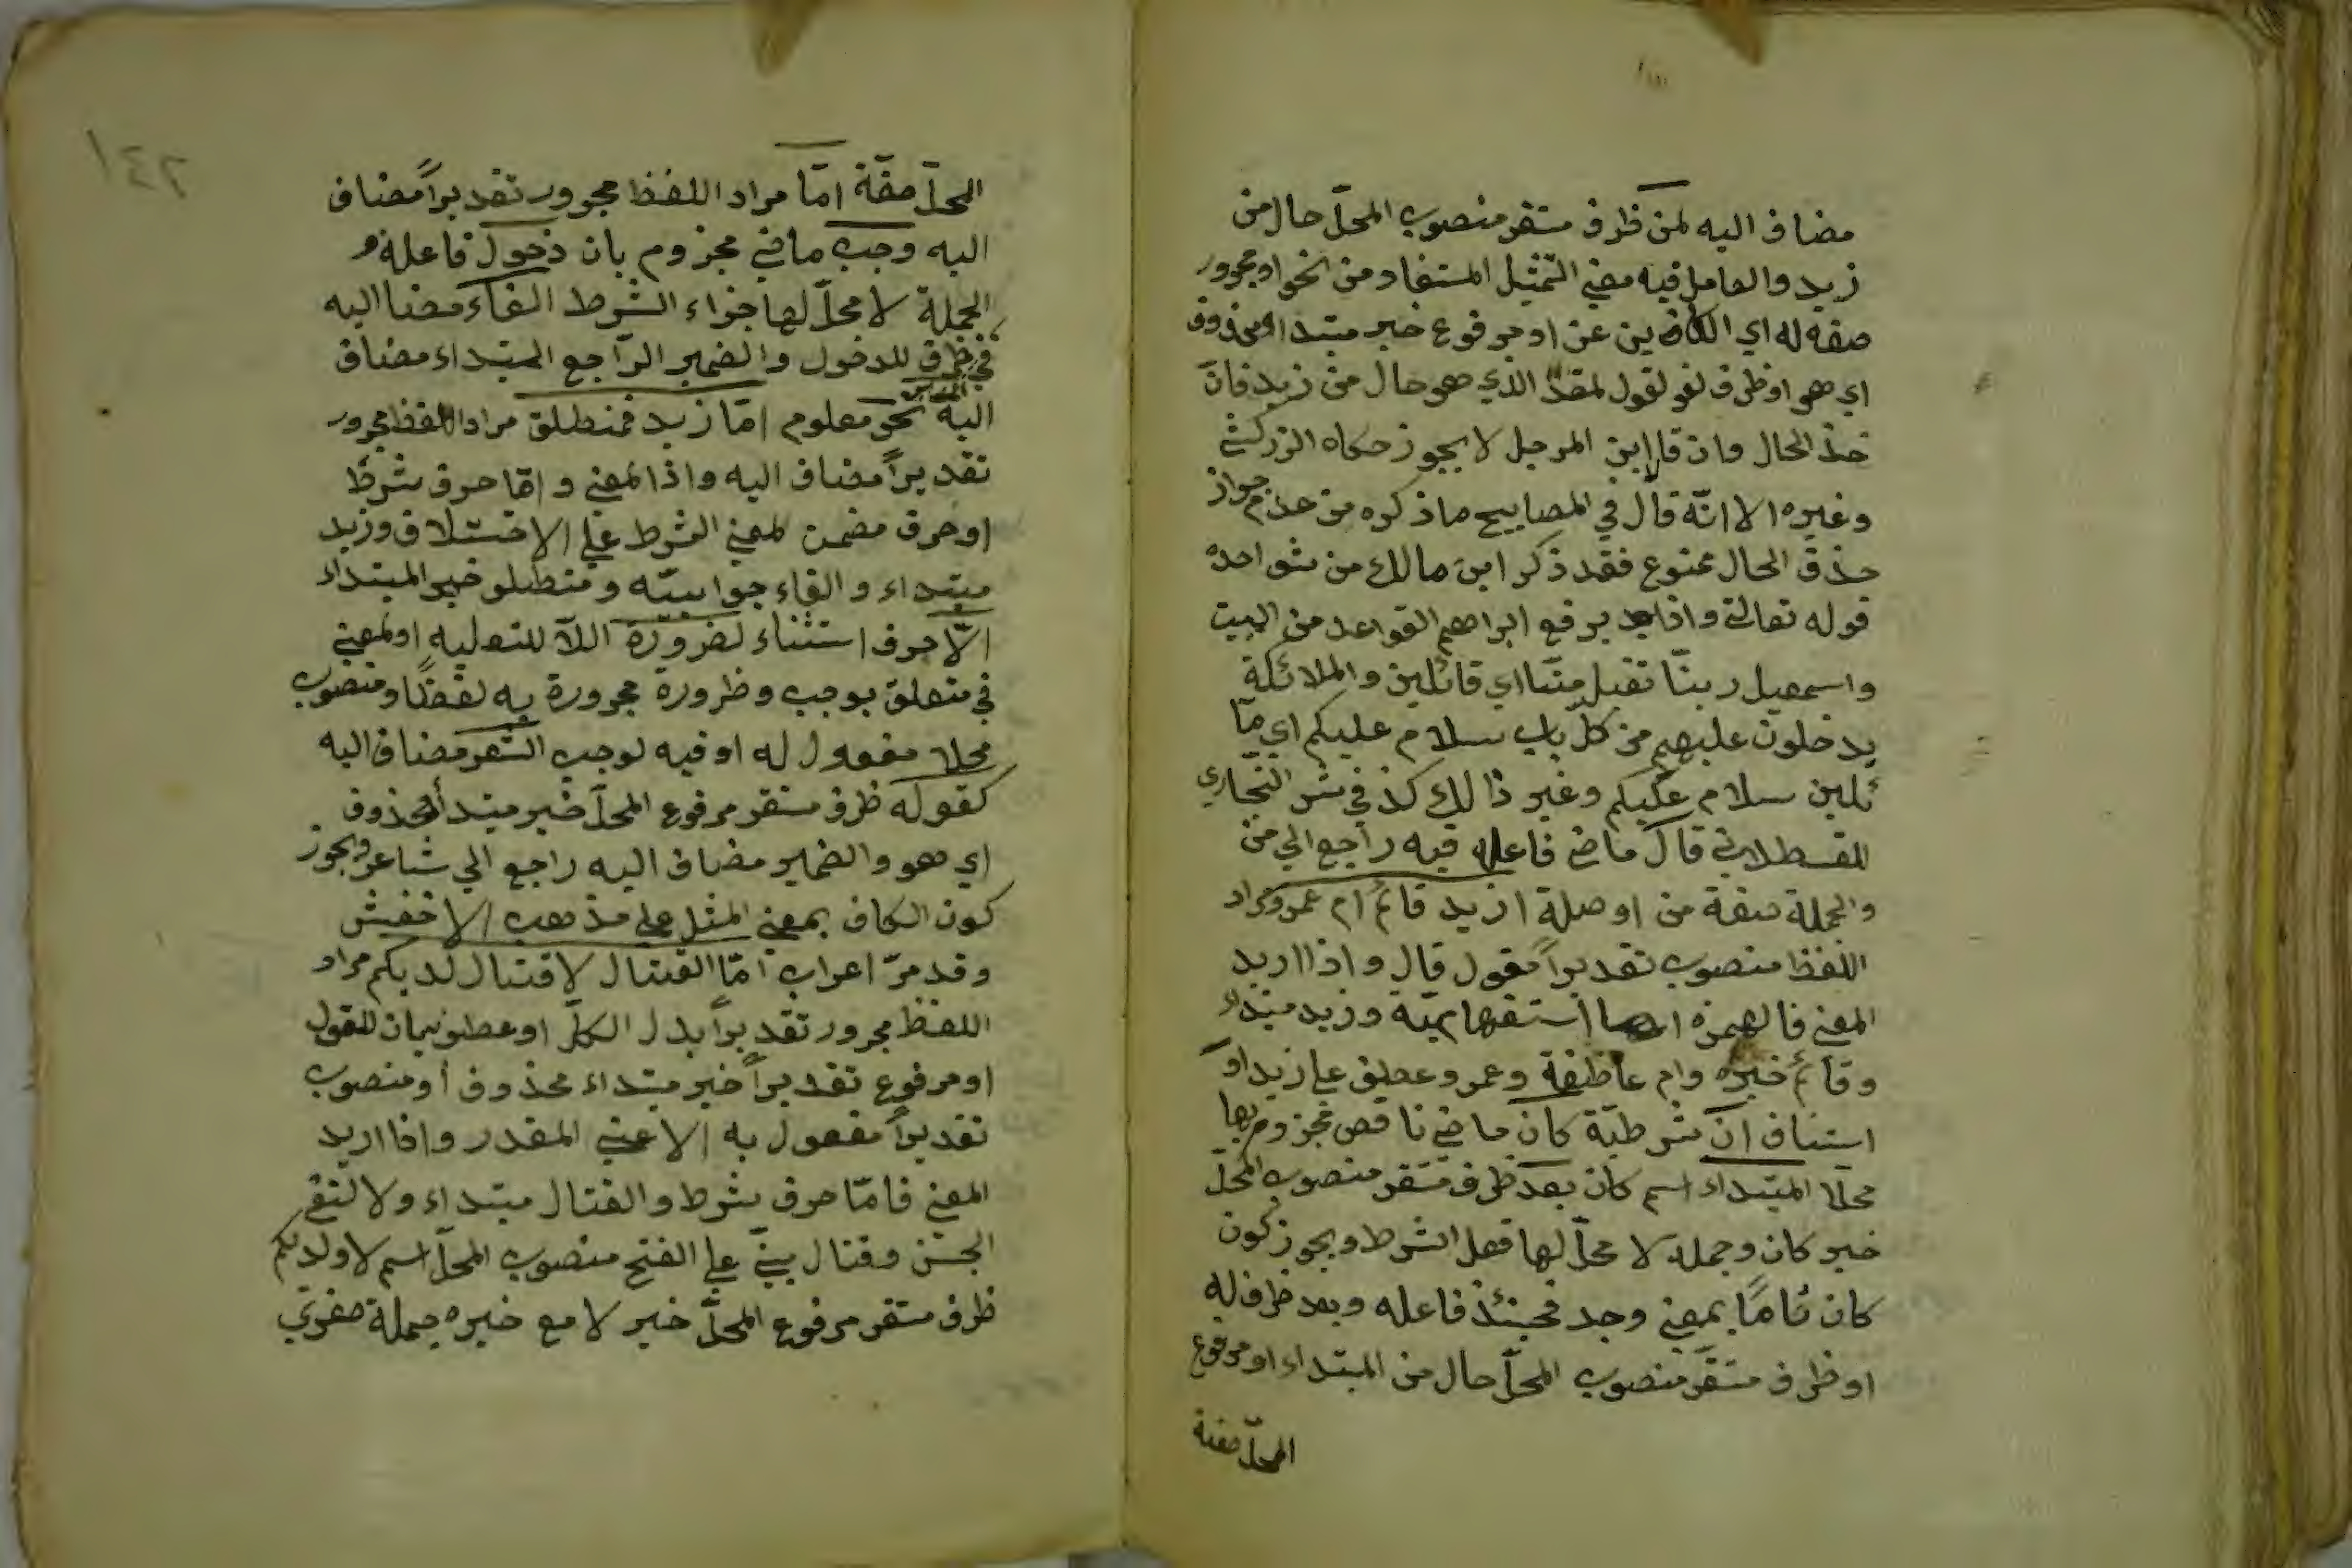 مضاف اليه لمن ظرف مستقر منصوب المحلّ حال من
زيد والعامل فيه معني التّمثيل المستفاد من النحو او مجرور
صفه له اي الكائنين عن او مرفوع خبر مبتداء محذوف
اي هو او ظرف لغو لقول لمقدّ الذي هو حال من زيد فانّ
حذ الحال وان قال ابن المرجل لا يجوز حكاه الزركشي
وغيره الا انّه قال في المصابيح ما ذكره من عدم جواز
حذف الحال ممنوع فقد ذكر ابن مالك من شواهده
قوله تعالي واذ يرفع ابراهيم القواعد من البيت
واسمعيل ربنّا تقبل منّا اي قائلين والملائكة
يدخلون عليهم من كلّ باب سلام عليكم اي قا
ئلين سلام عليكم وغير ذالك كذ في شر البخاري
للقسطلاني قال ماض فاعله فيه راجع الي من
والجملة صفة من او صلة ازيد قائم ام عمرو مراد
اللفظ منصوب تقديراً مقول قال واذا اريد
المعني فالهمزه استفهاميّة وزيد مبتداء
وقائم خبره وام عاطفة وعمرو عطف علي زيد او
استناف ان شرطيّة كان ماضي ناقص مجزوم بها
محلّا المبتداء اسم كان بعد ظرف مستقر منصوب المحلّ
خبر كان وجملة لا محلّ لها فعل الشرط ويجوز كون
كان تامّاً بمعني وجد فحينئذ فاعله وبعد ظرف له
او ظرف مستقر منصوب المحلّ حال من المبتداء او مرفوع
المحلّ صفة
١٤٢
المحلّ صفّة امّا مراد اللفظ مجرور تقديراً مضاف
اليه وجب ماضي مجزوم بان دخول فاعله و
الجملة لا محلّ لها جزاء الشرط الفاء مضا اليه
في ظرف للدخول والضمير الرّاجع المبتداء مضاف
اليه نحو معلوم امّا زيد فمنطلق مراد اللفظ مجرور
تقديراً مضاف اليه واذا لمعني و امّا حرف شرط
او حرف مضمن لمعني الشرط علي الاختلاف وزيد
مبتداء والفاء جوابيّه ومنطلو خبر المبتداء
الّا حرف استثناء لضرورة اللّا للتعليه او لمعني
في متعلق بوجب وظرورة مجرورة به لفظا ومنصوب
محلا مفعول له او فيه لوجب الشعر مضاف اليه
كقوله ظرف مستقر مرفوع المحلّ خبر مبتدأ محذوف
اي هو والضمير مضاف اليه راجع الي شاعر ويجوز
كون الكاف بمعني المثل علي مذهب الاخفش
وقد مرّ اعراب امّا القتال لا قتال لديكم مراد
اللفظ مجرور تقديراً بدل الكلّ او عطو بيان للقول
او مرفوع تقديراً خبر مبتداء محذوف أو منصوب
تقديراً مفعول به الاعني المقدر واذا اريد
المعني فامّا حرف شرط والقتال مبتداء ولا لنفي
الجنس وقتال بيّني علي الفتح منصوب المحلّ اسم لا ولديكم
ظرف مستقر مرفوع المحلّ خبر لا مع خبره جملة صغري